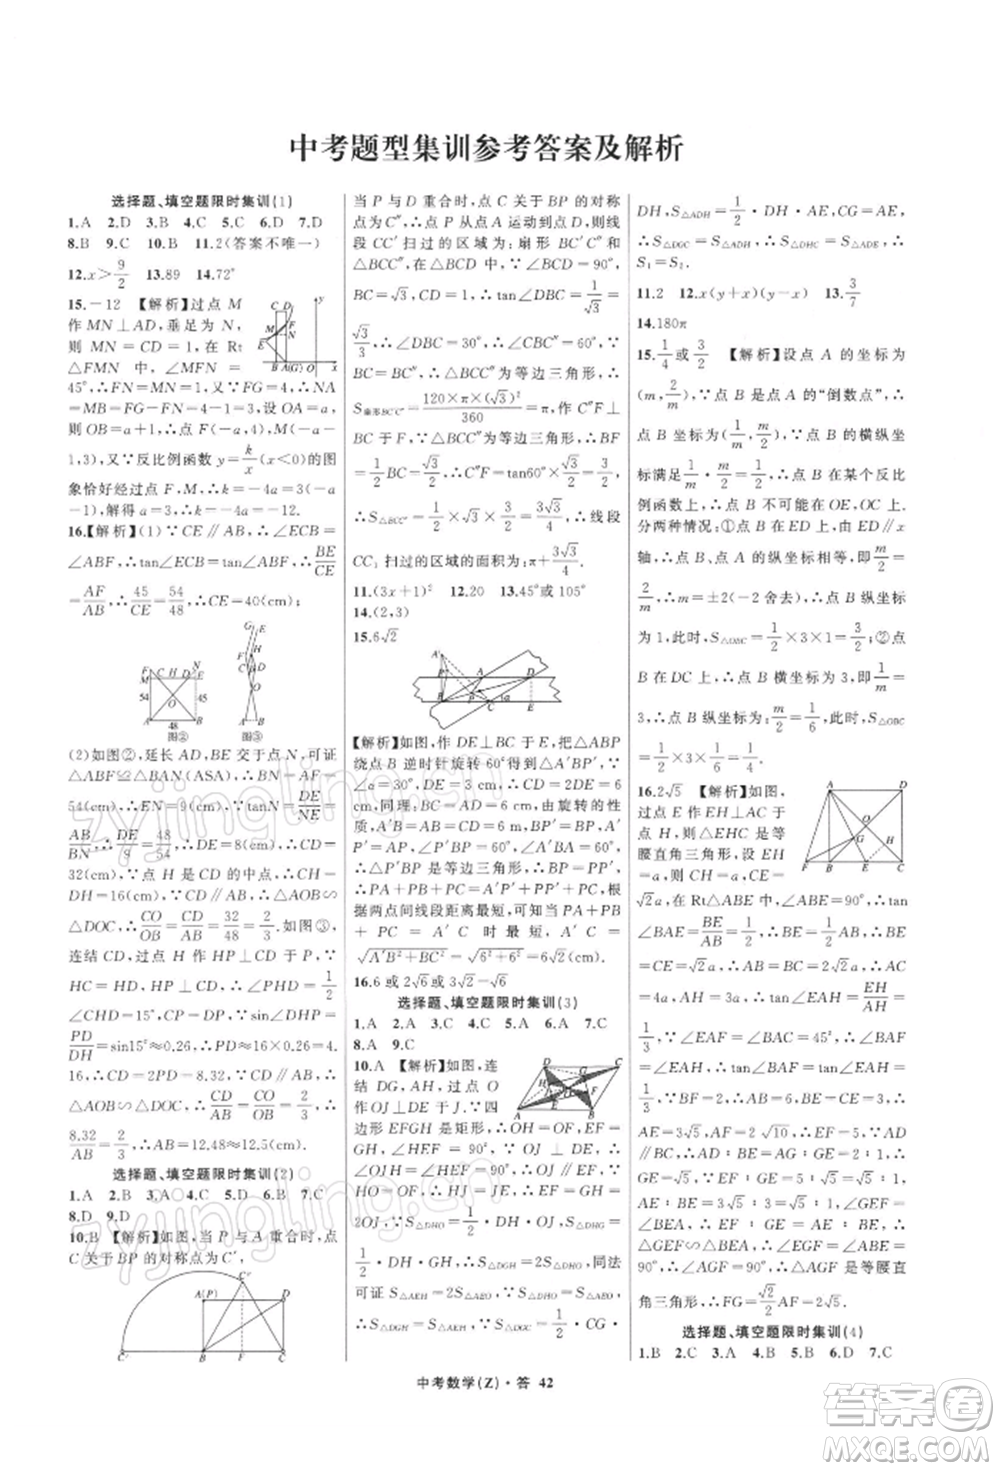 中考题型集训参考答案及解析
选择题、填空题限时集训(1)
1.A 2.D 3.B 4.C 5.C 6.D 7.D
8.B 9.C 10.B 11.2(答案不唯一)
12.x>9/2 13.89 14.72°
15.-12 【解析】过点 M
作 MN⊥AD,垂足为 N,
则 MN=CD=4. 在 Rt
△FMN 中, ∠MFN=
45°,∴FN=MN=4.又∵FG=4,∴NA
=MB=FG-FN=4-1=3,设 OA=a,
则 OB=a+1,∴点 F(-a,4),M(-a-
1,3),又∵反比例函数 y=k/x(x<0)的图
象恰好经过点 F,M,∴k=-4a=3(-a
-1),解得 a=3,∴k=-4a=-12.
16.【解析】(1)∵CE∥AB,∴∠CEB=
∠ABF,∴tan∠CEB=tan∠ABF,∴BE/CE
=AF/AB,∴45/CE=54/48,∴CE=40(cm)
图② 图③
(2)如图②,延长 AD,BE 交于点 N,可证
△ABF≌△BAN(ASA),∴BN=AF=
54(cm),∴EN=9(cm)∵tanN=DE/NE=
AB/BN,∴DE/9=48/54,∴DE=8(cm),∴CD=
32(cm)∵点 H 是 CD 的中点,∴CH=
DH=16(cm)∵CD∥AB,∴△AOB∽
△DOC,∴CO/BO=CD/AB=32/48=2/3.如图③,
连结 CD,过点 H 作 HP⊥CD 于点 P,∵
HC=HD,∴CP=PD,∴∠PHD=1/2
∠CHD=15°,∵sin∠DHP=
PD/DH=sin15°≈0.26,∴PD≈16×0.26=4.
16,∴CD=2PD=8.32,∵CD∥AB,∴
△AOB∽△DOC,∴CD/AB=CO/BO=2/3,∴
8.32/AB=2/3,∴AB=12.48≈12.5(cm).
选择题、填空题限时集训(2)
1.A 2.B 3.A 4.C 5.D 6.B 7.C
8.D 9.D
10.B 【解析】如图,当 P 与 A 重合时,点
C 关于 BP 的对称点为 C′,
当 P 与 D 重合时,点 C 关于 BP 的对称
点为 C″,∴点 P 从点 A 运动到点 D,则线
段 CC′ 扫过的区域为: 扇形 BC′C″ 和
△BCC″,在△BCD 中,∠BCD=90°,
BC=√3,CD=1,∴tan∠DBC=1/√3=
√3/3,∴∠DBC=30°,∴∠CBC″=60°,∵
BC=BC″,∴△BCC″为等边三角形,∴
S扇形BC′C″=120×π×(√3)²/360=π,作 C″F⊥
BC 于 F,∵△BCC″为等边三角形,∴BF
=1/2BC=√3/2,∴C″F=tan60°×√3/2=3/2,
∴S△BCC″=1/2×√3×3/2=3√3/4,∴线段
CC₁ 扫过的区域的面积为:π+3√3/4.
11.(3x+1)² 12.20 13.45°或 105°
14.(2,3)
15.6√2
【解析】如图,作 DE⊥BC 于 E,把△ABP
绕点 B 逆时针旋转 60°得到△A′BP′,
∵∠α=30°,DE=3,∴CD=2DE=6
cm,同理:BC=AB=6,由旋转的性质:
A′B=AB=CD=6,BP′=BP,A′P′=
AP,∠P′BP=60°,∠A′BA=60°,
∴△P′BP 是等边三角形,∴BP=PP′,
∴PA+PB+PC=A′P′+PP′+PC,
根据两点间线段距离最短,可知当 PA+PB
+ PC = A′C 时最短, A′C =
√A′B²+BC²=√6²+6²=6√2.
16.6 或 2√6或 3√2-√6
选择题、填空题限时集训(3)
1.A 2.A 3.C 4.C 5.A 6.A 7.C
8.A 9.C
10.A 【解析】如图,连
结 DG,AH,过点 O
作 OJ⊥DE 于 J.∵四
边形 EFGH 是矩形,∴OH=OF,EF=
GH,∠HEF=90°,∵OJ⊥DE,∴∠OJH
=∠HEF=90°,∴OJ∥EF,∵HO=
OF,∴HJ=JE,∴EF=GH=
2OJ,∵S△DHO=1/2·DH·OJ,S△DHG=
1/2·DH·GH,∴S△DGH=2S△DHO,同法
可证 S△AEH=2S△AEO,∵S△DHO=S△AEO,
∴S△DGH=S△AEH,∵S△DGC=1/2·CG·
DH,S△ADH=1/2·DH·AE,CG=AE,
∴S△DGC=S△ADH,∴S△DHC=S△ADE,∴
S₁=S₂.
11.2 12.x(y+x)(y-x) 13.3/7
14.180π
15.1/4或3/2 【解析】设点 A 的坐标为
(m,2/m),∵点 B 是点 A 的“倒数点”,∴
点 B 坐标为(1/m,m/2),∵点 B 的横纵坐
标满足1/m·m/2=1/2,∴点 B 在某个反比
例函数上,∴点 B 不可能在 OE,OC 上,
分两种情况:①点 B 在 ED 上,由 ED∥x
轴,∴点 B、点 A 的纵坐标相等,即m/2=
2/m,∴m=±2(-2 舍去),∴点 B 纵坐标
为 1,此时,S△OBC=1/2×3×1=3/2;②点
B 在 DC 上,∴点 B 横坐标为 3,即1/m=
3,∴点 B 纵坐标为:m/2=1/6,此时,S△OBC
=1/2×3×1/6=1/4.
16.2√5 【解析】如图,
过点 E 作 EH⊥AC 于
点 H,则△EHC 是等
腰直角三角形,设 EH
=a,则 CH=a,CE=
√2a,在 Rt△ABE 中,∠ABE=90°,tan
∠BAE=BE/AB=1/2,∴BE=1/2AB,∴BE
=CE=√2a,∴AB=BC=2√2a,∴AC
=4a,AH=3a,∴tan∠EAH=EH/AH=
1/3,∵∠EAF=∠BAC=45°,∴∠BAF
=∠EAH,∴tan∠BAF=tan∠EAH=
1/3,∵BF=2,∴AB=6,BE=CE=3,∴
AE=3√5,AF=2√10,∵AD∥CE,∴
AD∶CE=AG∶GE=2∶1,
∴GE=√5,∵AE∶BE=3√5∶3=√5,
AF∶GF,∠GEF=
∠BEA,∴△GEF∽△BEA,∴∠EGF=
∠ABE=90°,∴∠AGF=90°,△AGF是等腰直
角三角形,∴FG=√2/2AF=2√5.
选择题、填空题限时集训(4)
1.B 2.C 3.C 4.D 5.B 6.D 7.C
中考数学(Z)·答 42